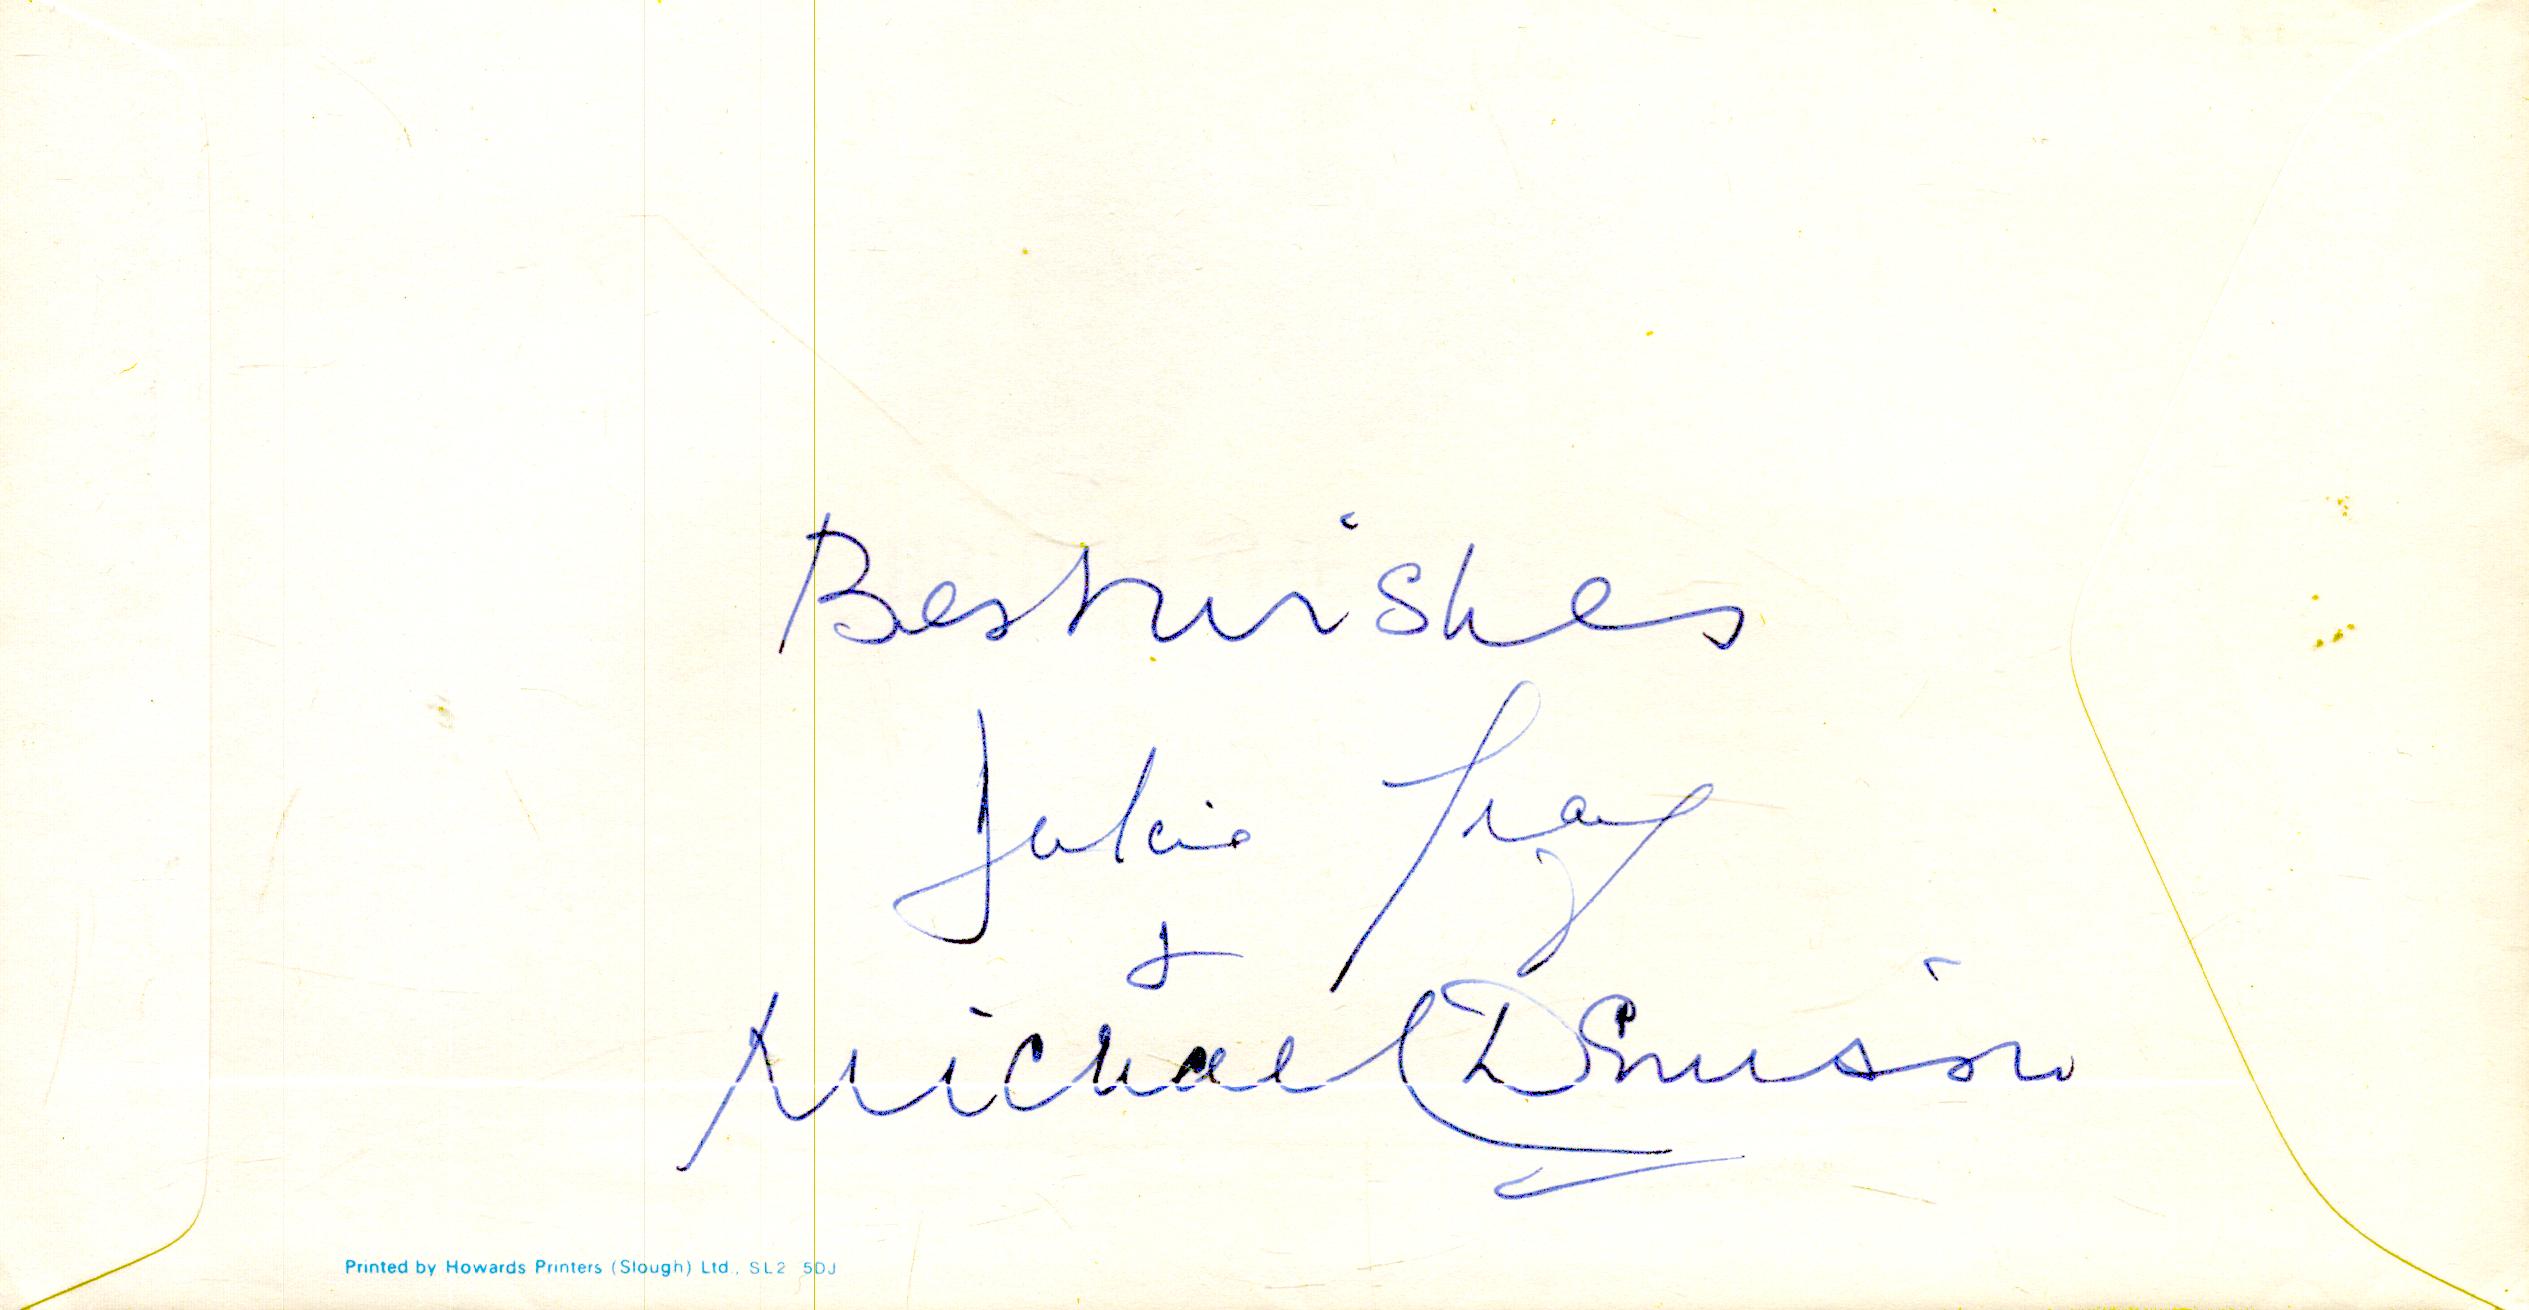 Best wishes
Dulcie Gray
&
Michael Denison
Printed by Howards Printers (Slough) Ltd., SL2 5DJ